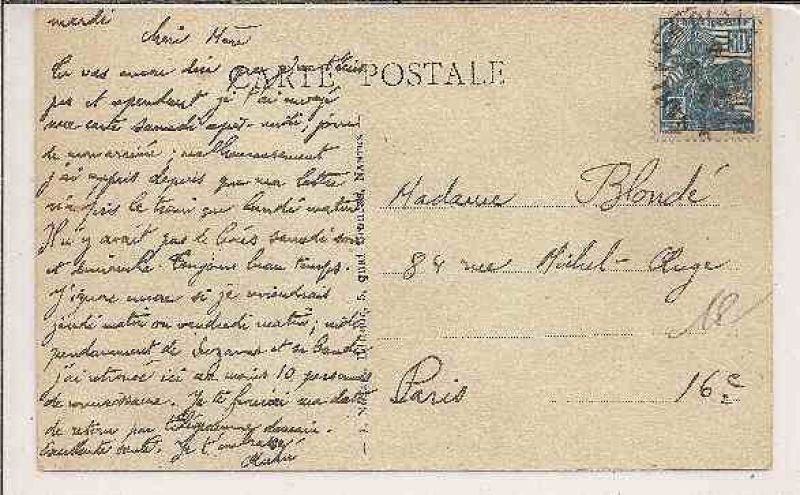 mardi
Chérie Mère
Tu vas encore dire que n'écris
pas et cependant je t'ai envoyé
une carte samedi après-midi, jour
de mon arrivée ; malheureusement
j'ai appris depuis que ma lettre
n'a pris le train que lundi matin
Il n'y avait pas de levés samedi soir
et dimanche. Toujours beau temps.
J'ignore encore si je reviendrais
jeudi matin ou vendredi matin ;
de Suzanne et
j'ai retrouvé ici au moins 10 personnes
de connaissance. Je te ma date
de retour par demain.
Excellente santé. Je t'embrasse
CARTE POSTALE
NANTES
Madame Blondé
84 rue Michel-Ange
Paris 16e